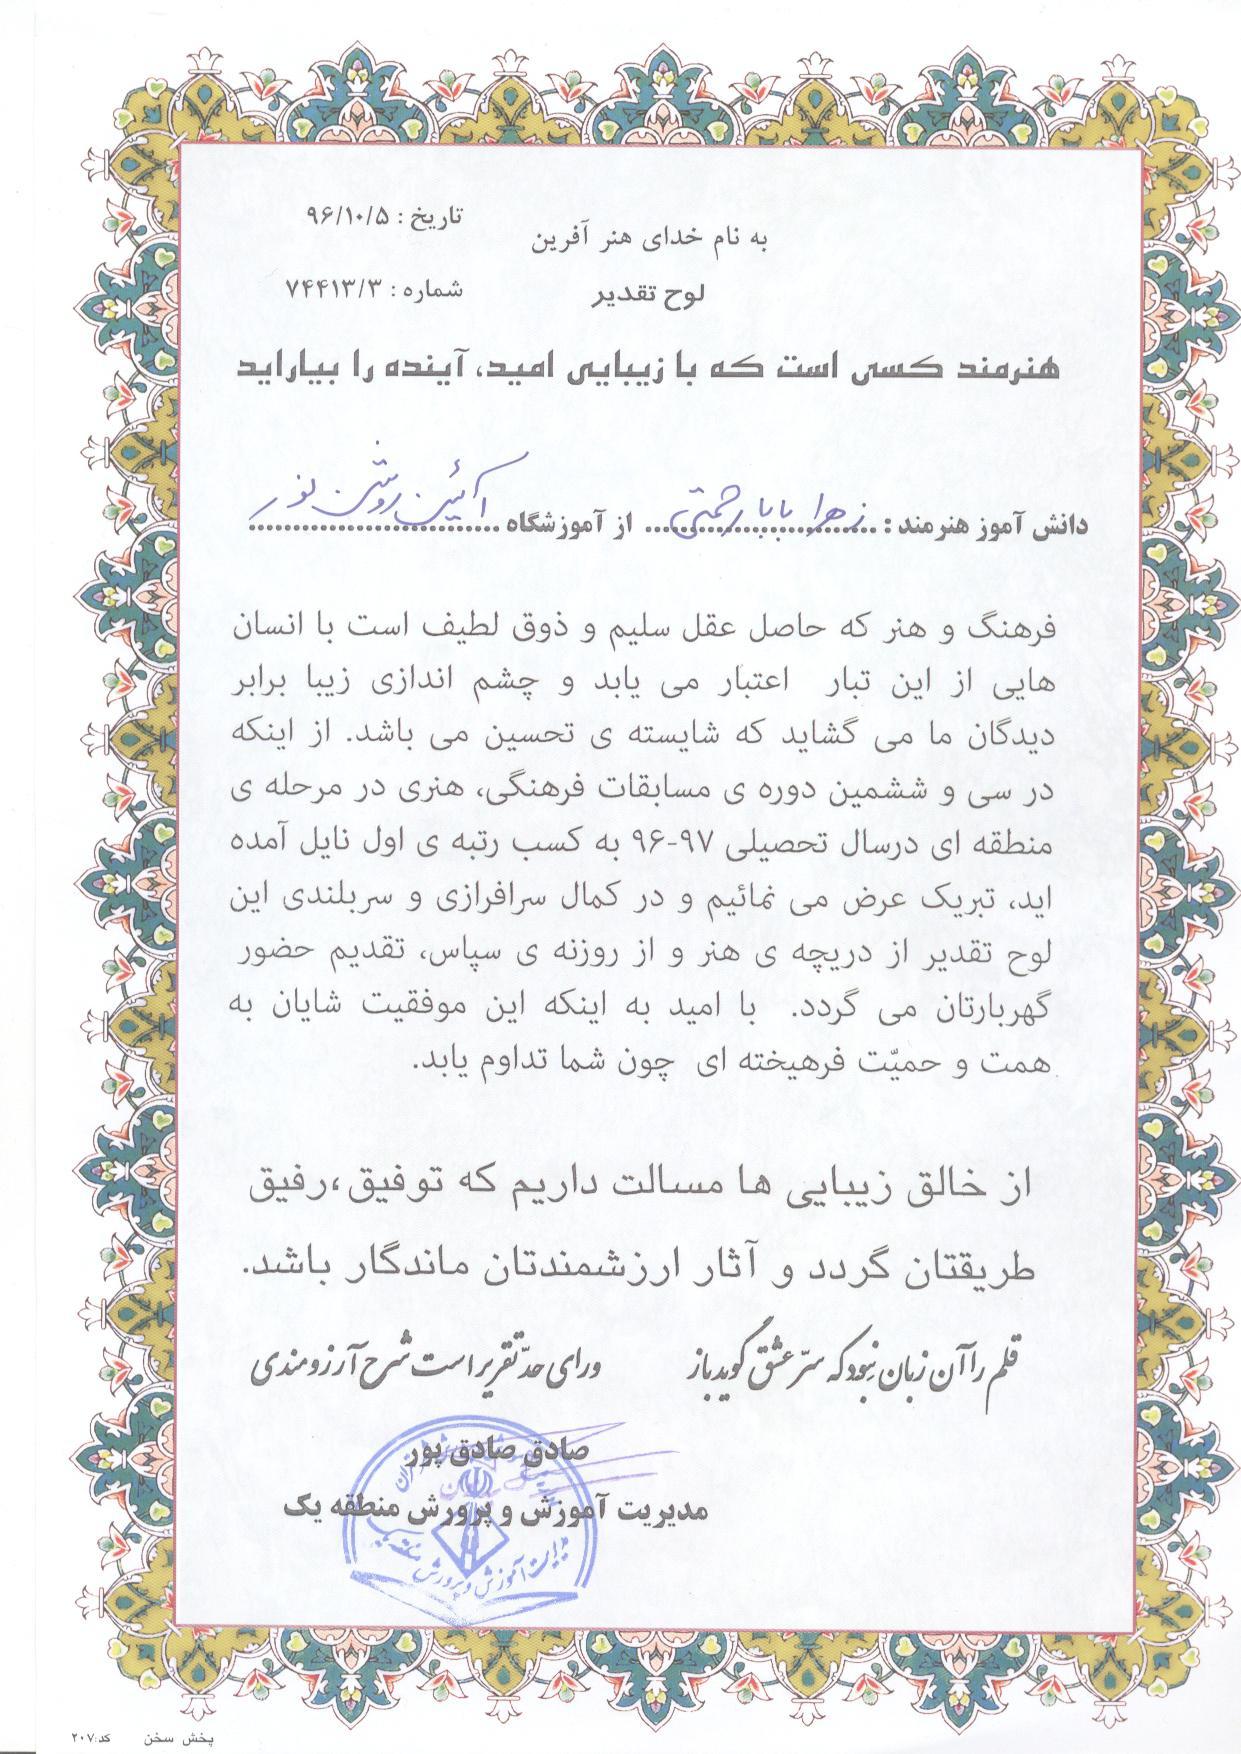 به نام خدای هنر آفرین
تاریخ : ۹۶/۱۰/۵
لوح تقدیر
شماره : ۷۴۴۱۳/۳
هنرمند کسی است که با زیبایی امید، آینده را بیاراید
دانش آموز هنرمند : زهرا بابارحمتی از آموزشگاه آئین روشن نور
فرهنگ و هنر که حاصل عقل سلیم و ذوق لطیف است با انسان
هایی از این تبار اعتبار می یابد و چشم اندازی زیبا برابر
دیدگان ما می گشاید که شایسته ی تحسین می باشد. از اینکه
در سی و ششمین دوره ی مسابقات فرهنگی، هنری در مرحله ی
منطقه ای درسال تحصیلی ۹۷-۹۶ به کسب رتبه ی اول نایل آمده
اید، تبریک عرض می نمائیم و در کمال سرافرازی و سربلندی این
لوح تقدیر از دریچه ی هنر و از روزنه ی سپاس، تقدیم حضور
گهربارتان می گردد. با امید به اینکه این موفقیت شایان به
همت و حمیّت فرهیخته ای چون شما تداوم یابد.
از خالق زیبایی ها مسالت داریم که توفیق،رفیق
طریقتان گردد و آثار ارزشمندتان ماندگار باشد.
قلم را آن زبان نبود که سرّ عشق گوید باز ورای حدّ تقریر است شرح آرزومندی
صادق صادق پور
مدیریت آموزش و پرورش منطقه یک
مدیریت آموزش و پرورش منطقه یک
پخش سخن کد:۲۰۷